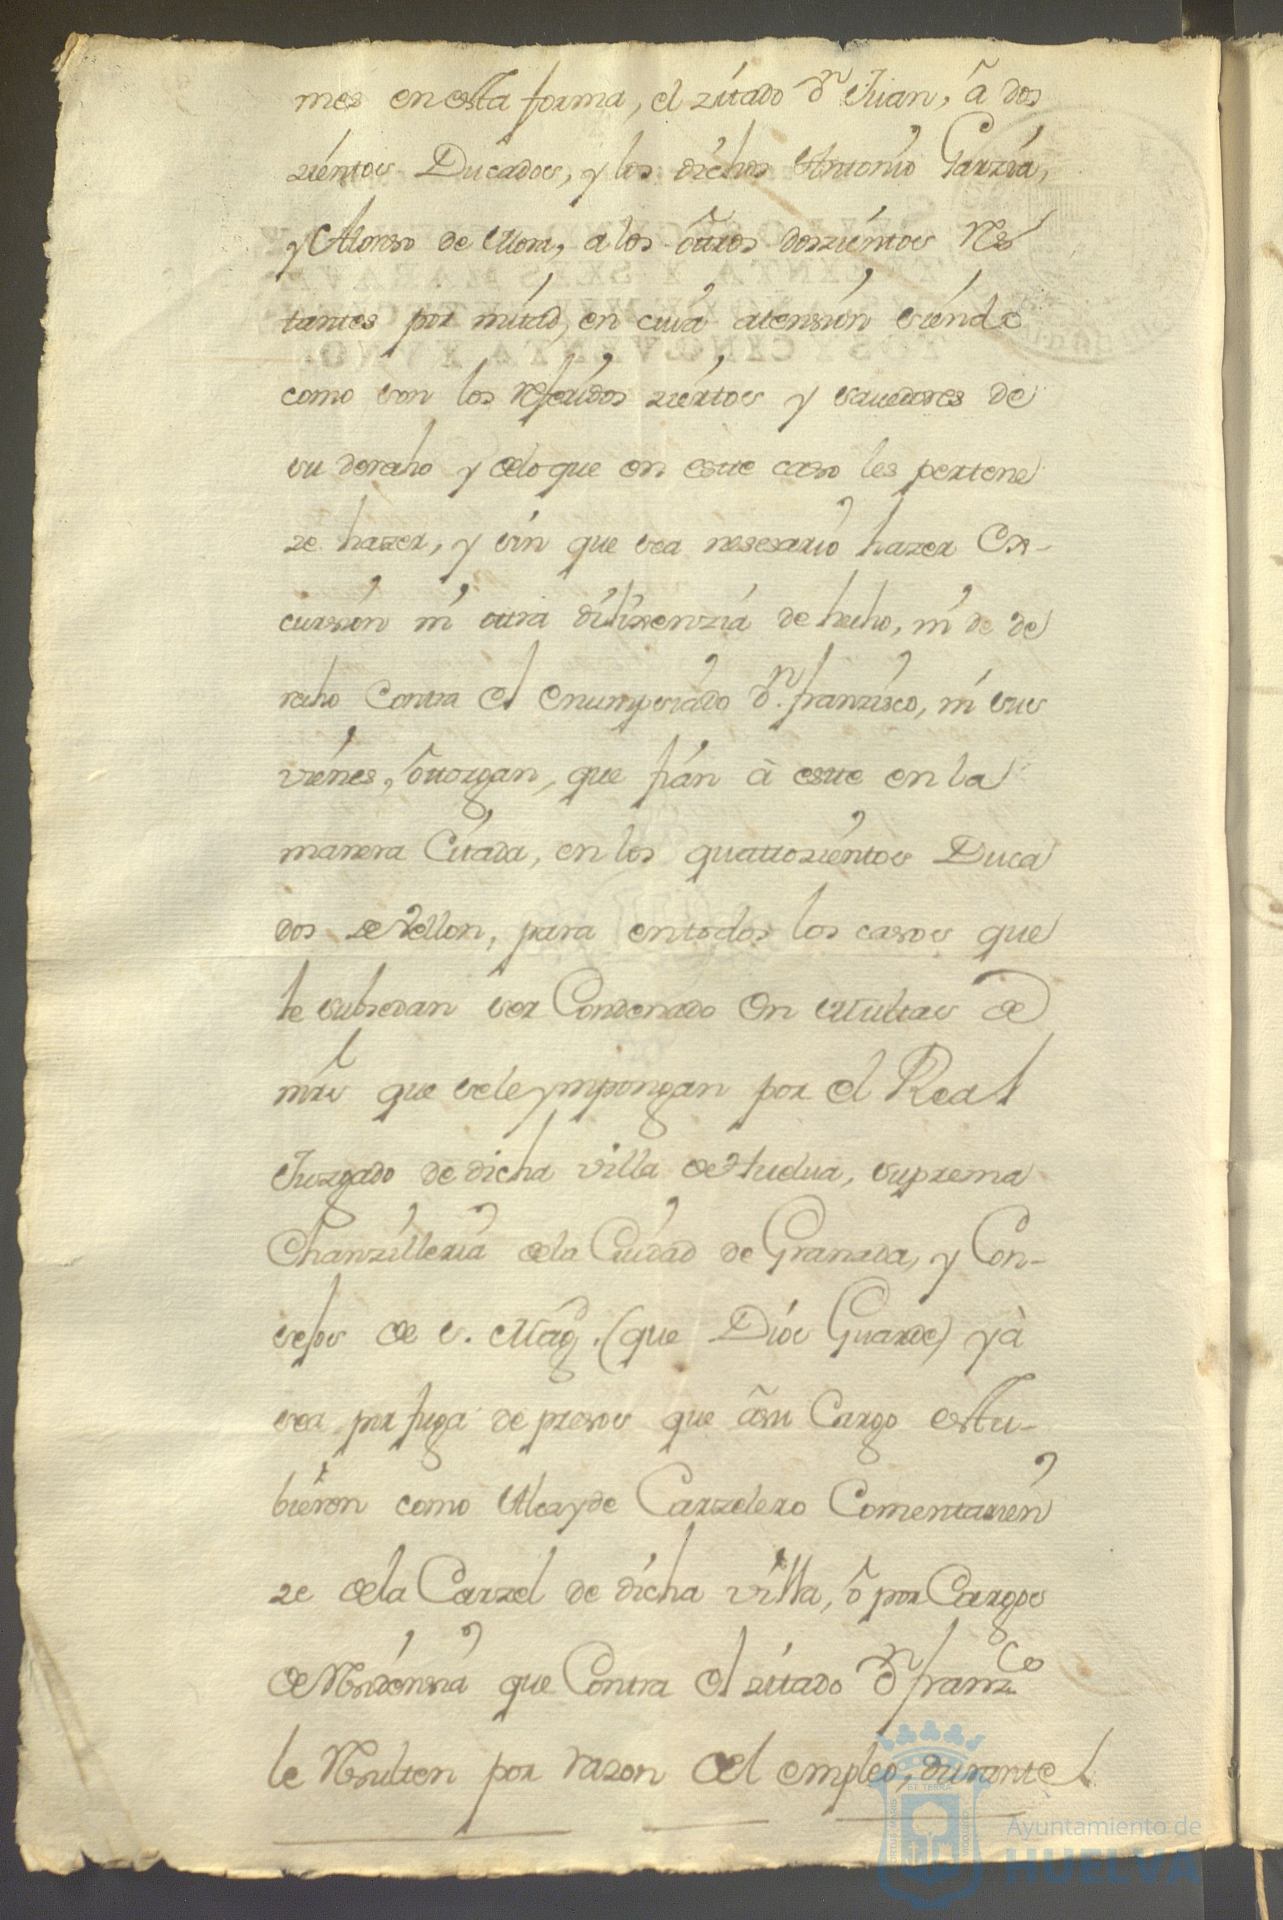 mes en esta forma, el zitado Dn Juan, â dos
zientos Ducados, y los dichos Antonio Garzia,
y Alonso de Mora, a los ôtros doszientos Res
tantes por mitad, en cuia atension siendo
como son los referidos ziertos y sauedores de
su derecho y de lo que en este caso les pertene
ze hazer, y sin que sea nesesario hazer Ex-
cursion ni otra dilixenzia de hecho, ni de de
recho Contra el enumpsiado Dn. franzisco, ni sus
vienes, ôtorgan, que fian à este en la
manera Citada, en los quattrozientos Duca
dos de Vellon, para en todos los casos que
le subsedan ser Condenado en Multas de
mrs que se le ympongan por el Real
Juzgado de dicha villa de Huelua, suprema
Chanzilleria de la Ciudad de Granada, y Con-
sejos de S. Magd. (que Dios Guarde) yà
sea por fuga de presos que âsu Cargo estu-
bieron como Alcayde Carzelero Comentarien
ze de la Carzel de dicha villa, ô por Cargos
de Residensia que Contra el zitado Dn franzco
le Resulten por razon del empleo, durante
Ayuntamiento de
HUELVA